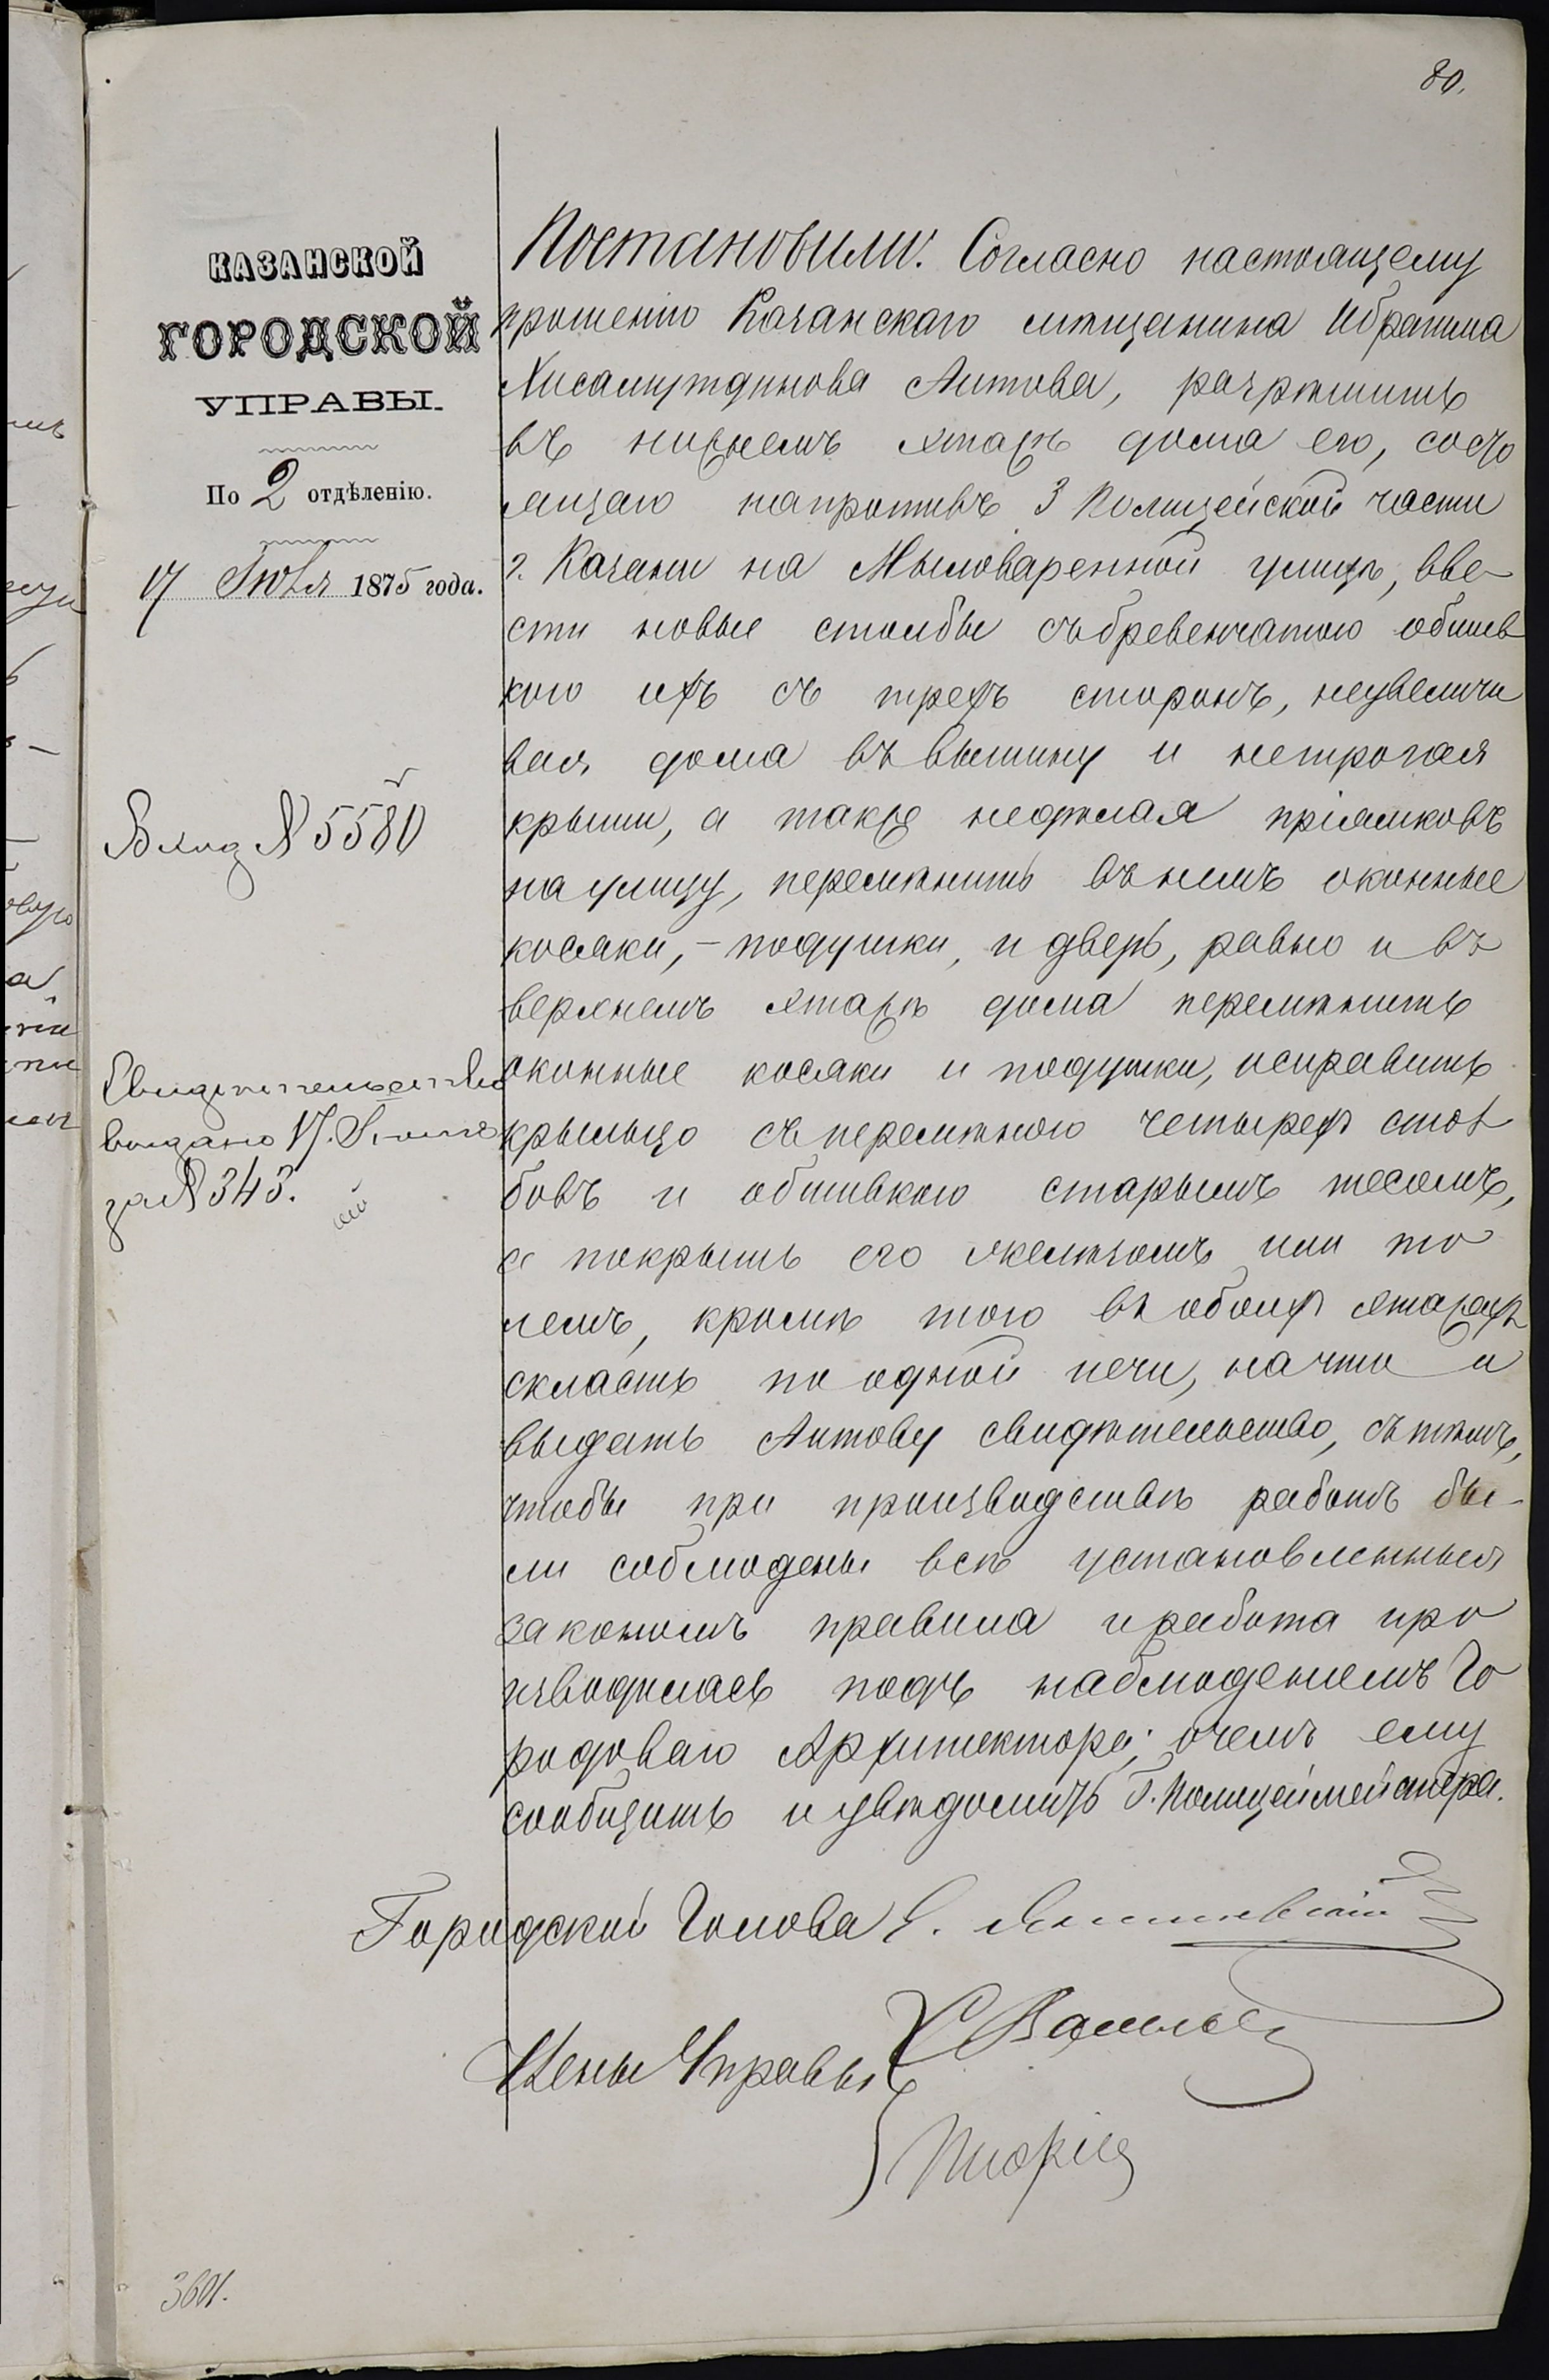 80.
КАЗАНСКОЙ
ГОРОДСКОЙ
УПРАВЫ.
По 2 отдѣленію.
17 Іюля 1875 года.
Вход № 5580
Свидѣтельство
выдано 17 Іюля
за № 343.
Постановили: Согласно настоящему
прошенію Казанскаго мѣщанина Ибрагима
Хисамутдинова Аитова, разрѣшить
въ нижнемъ этажѣ дома его, состо
ящаго напротивъ 3 Полицейской части
г. Казани на Мыловаренной улицѣ, вве-
сти новые столбы съ бревенчатою обшив
кою ихъ съ трехъ сторонъ, неувеличи
вая дома въ вышину и нетрогая
крыши, а такъ же недѣлая пріямковъ
на улицу, перемѣнить въ немъ оконные
косяки, - подушки, и дверь, равно и въ
верхнемъ этажѣ дома перемѣнить
оконные косяки и подушки, исправить
крыльцо съ перемѣною четырехъ стол
бовъ и обшивкою старымъ тесомъ,
и покрыть его желѣзомъ или то
лемъ, кромѣ того въ обоихъ этажахъ
скласть по одной печи, на что и
выдать Аитову свидѣтельство, съ тѣмъ,
чтобы при производствѣ работъ бы-
ли соблюдены всѣ установленныя
закономъ правила и работа про
изводилась подъ наблюденіемъ Го
родоваго Архитектора; о чемъ ему
сообщить и увѣдомить Г. Полицеймейстера.
Городской Голова Э. Янишевскій
Члены Управы
3601.